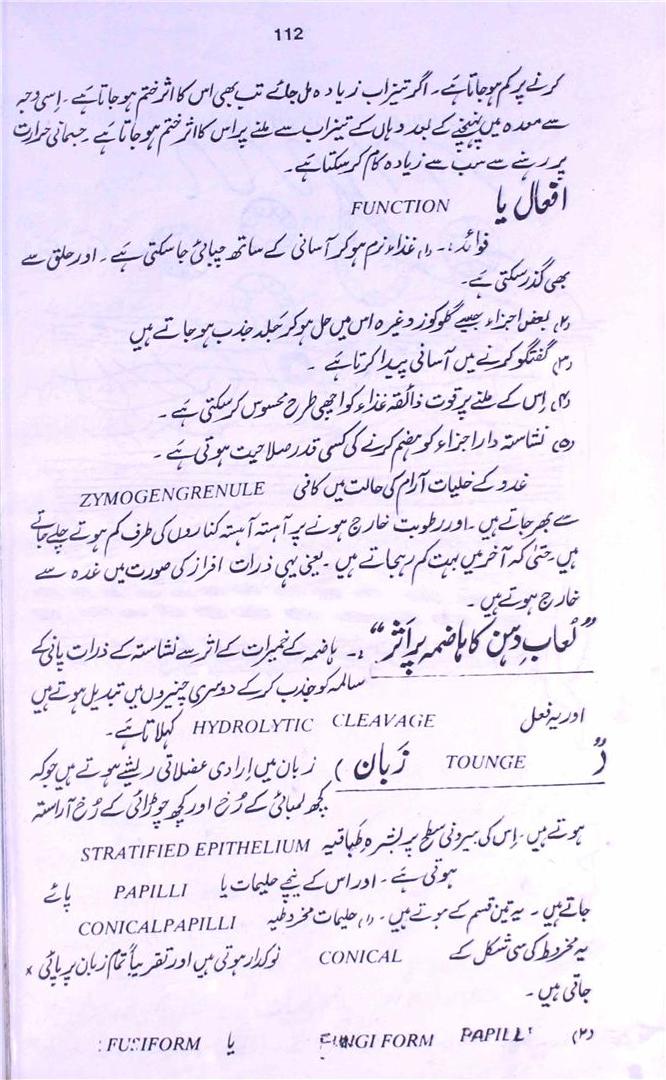 112
کرنے پر کم ہو جاتا ہے۔ اگر تیزاب زیادہ مل جائے تب بھی اس کا اثر ختم ہو جاتا ہے۔ اِسی وجہ
سے معدہ میں پہنچنے کے بعد وہاں کے تیزاب سے ملنے پر اس کا اثر ختم ہو جاتا ہے۔ جسمانی حرارت
پر رہنے سے سب سے زیادہ کام کر سکتا ہے۔
افعال یا FUNCTION
فوائد :۔ (۱) غذاء نرم ہو کر آسانی کے ساتھ چبائی جا سکتی ہے۔ اور حلق سے
بھی گذر سکتی ہے۔
(۲) بعض اجزاء جیسے گلوکوز وغیرہ اس میں حل ہو کر جلد جذب ہو جاتے ہیں
(۳) گفتگو کرنے میں آسانی پیدا کرتا ہے۔
(۴) اِس کے ملنے پر قوت ذائقہ غذاء کو اچھی طرح محسوس کر سکتی ہے۔
(۵) نشاستہ دار اجزاء کو ہضم کرنے کی کسی قدر صلاحیت ہوتی ہے۔
غدو کے خلیات آرام کی حالت میں کافی ZYMOGENGRENULE
سے بھر جاتے ہیں۔ اور رطوبت خارج ہونے پر آہستہ آہستہ کناروں کی طرف کم ہوتے چلے جاتے
ہیں۔ حتیٰ کہ آخر میں بہت کم رہ جاتے ہیں۔ یعنی یہی ذرات افراز کی صورت میں غدہ سے
خارج ہوتے ہیں۔
”لعابِ دہن کا ہاضمہ پر اَثر“ :۔ ہاضمہ کے خمیرات کے اثر سے نشاستہ کے ذرات پانی کے
سالمہ کو جذب کر کے دوسری چیزوں میں تبدیل ہوتے ہیں
اور یہ فعل HYDROLYTIC CLEAVAGE کہلاتا ہے۔
( TOUNGE زَبان ) زبان میں اِرادی عضلاتی ریشے ہوتے ہیں جو کہ
کچھ لمبائی کے رُخ اور کچھ چوڑائی کے رُخ آراستہ
ہوتے ہیں۔ اِس کی بیرونی سطح پر بشرہ طباقیہ STRATIFIED EPITHELIUM
ہوتی ہے۔ اور اس کے نیچے حلیمات یا PAPILLI پائے
جاتے ہیں۔ یہ تین قسم کے ہوتے ہیں۔ (۱) حلیمات مخروطیہ CONICALPAPILLI
یہ مخروط کی سی شکل کے CONICAL نوکدار ہوتی ہیں اور تقریباً تمام زبان پر پائی x
جاتی ہیں۔
(۲) PAPILLI FUNGI FORM یا FUSIFORM :